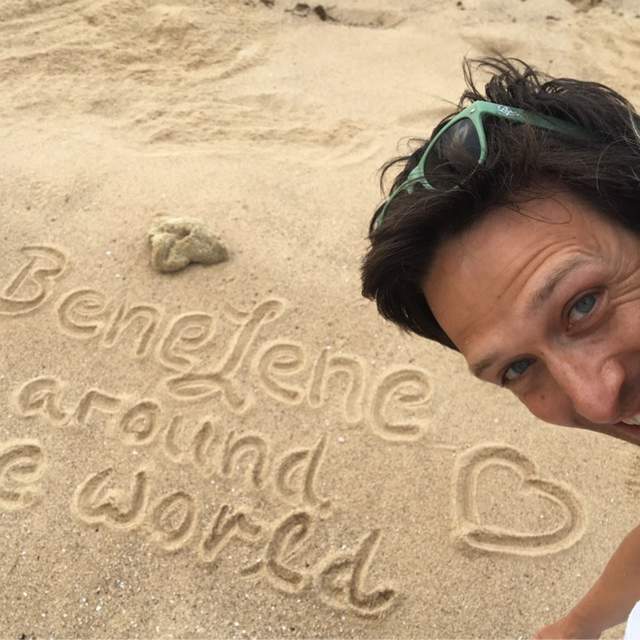 BeneLene
around
e world